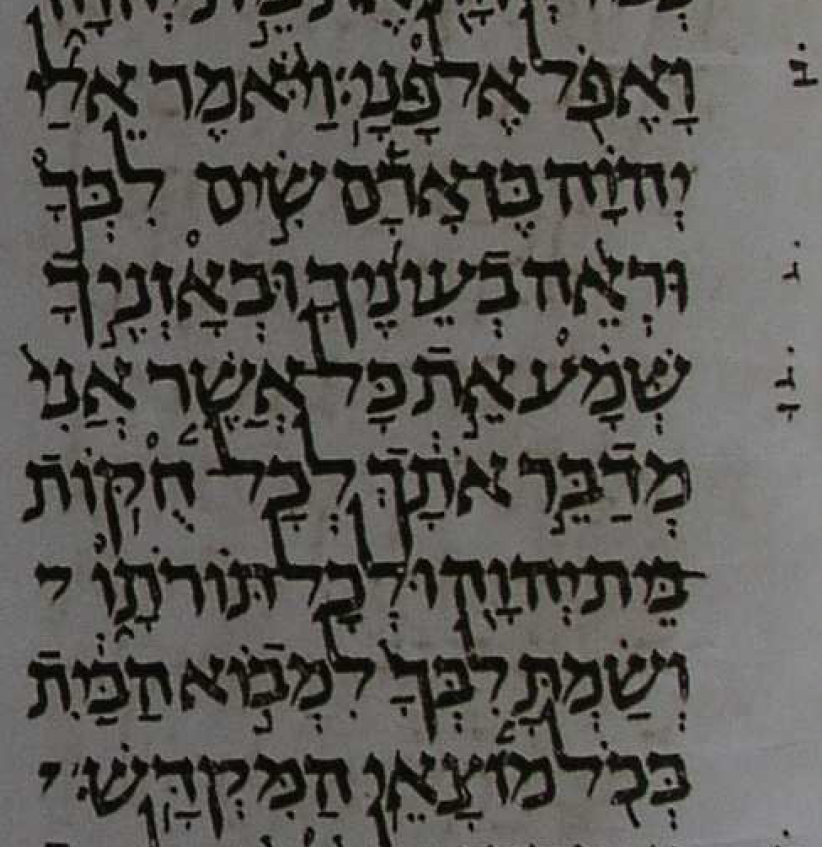 וָאֶפֹּל אֶל פָּנָי׃ וַיֹּאמֶר אֵלַי
ב
יְהוָה בֶּן אָדָם שִׂים לִבְּךָ
וּרְאֵה בְעֵינֶיךָ וּבְאָזְנֶיךָ
שְּׁמָע אֵת כָּל אֲשֶׁר אֲנִי
מְדַבֵּר אֹתָךְ לְכָל חֻקּוֹת
בֵּית יְהוָה וּלְכָל תּוֹרֹתָו
וְשַׂמְתָּ לִבְּךָ לִמְבוֹא הַבַּיִת
בְּכֹל מוֹצָאֵי הַמִּקְדָּשׁ